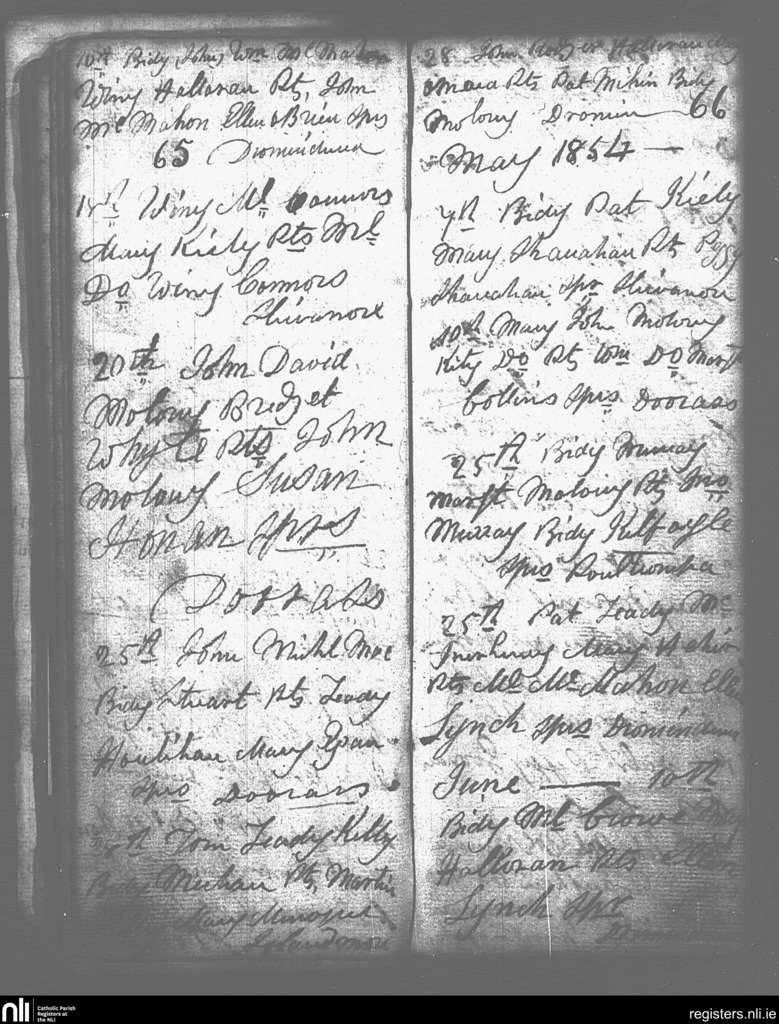 10th Bidy John Wm Mc Mahon
Winy Halloran Pts, John
Mc Mahon Ellen OBrien Sprs
65 Drominduna
18th Winy Ml Connors
Mary Kiely Pts Ml
Do Winy Connors
20th John David
Molony Bredget
Whyte Pts John
Molony Susan
Honan Sprs
25th John Michl
Bidy Stuart Pts Teady
Houlihan Mary Egan
Sprs Dooraas
Tom Teady Kelly
Bidy Meehan Pts, Martin
Mary
28 John Halloran
Pts Pat Bidy
Molony Dromin 66
May 1854
7th Bidy Pat Kiely
Mary Shanahan Pts Peggy
Shanahan Spr
10th Mary John Molony
Kity Do Pts Wm Do Margt
Collins Sprs Dooraas
25th Bidy
Margt Molony Pts
Murray Bidy Kilfoyle
Sprs
25th Pat Teady Mc
Inerheney Mary
Pts Ml Mc Mahon Ellen
Lynch Sprs Drominduna
June 10th
Bidy Ml Crowe
Halloran Pts Ellen
Lynch Spr
nli
Catholic Parish
Registers at
the NLI
registers.nli.ie